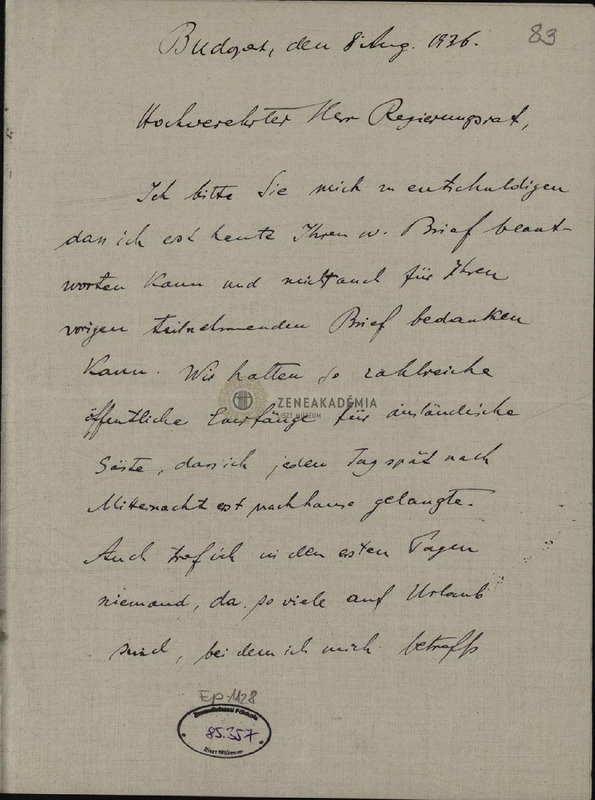 83
Budapest, den 8 Aug. 1936.
Hochverehrter Herr Regierungsrat,
Ich bitte Sie mich zu entschuldigen
dass ich erst heute Ihren w. Brief beant-
worten kann und mich auch für Ihren
vorigen teilnehmenden Brief bedanken
kann. Wir hatten so zahlreiche
ZENEAKADÉMIA
LISZT MÚZEUM
öffentliche Empfänge für ausländische
Gäste, dass ich jeden Tag spät nach
Mitternacht erst nachhause gelangte.
Auch traf ich in den ersten Tagen
niemand, da so viele auf Urlaub
sind, bei dem ich mich betreffs
Ep. 1128
85.357